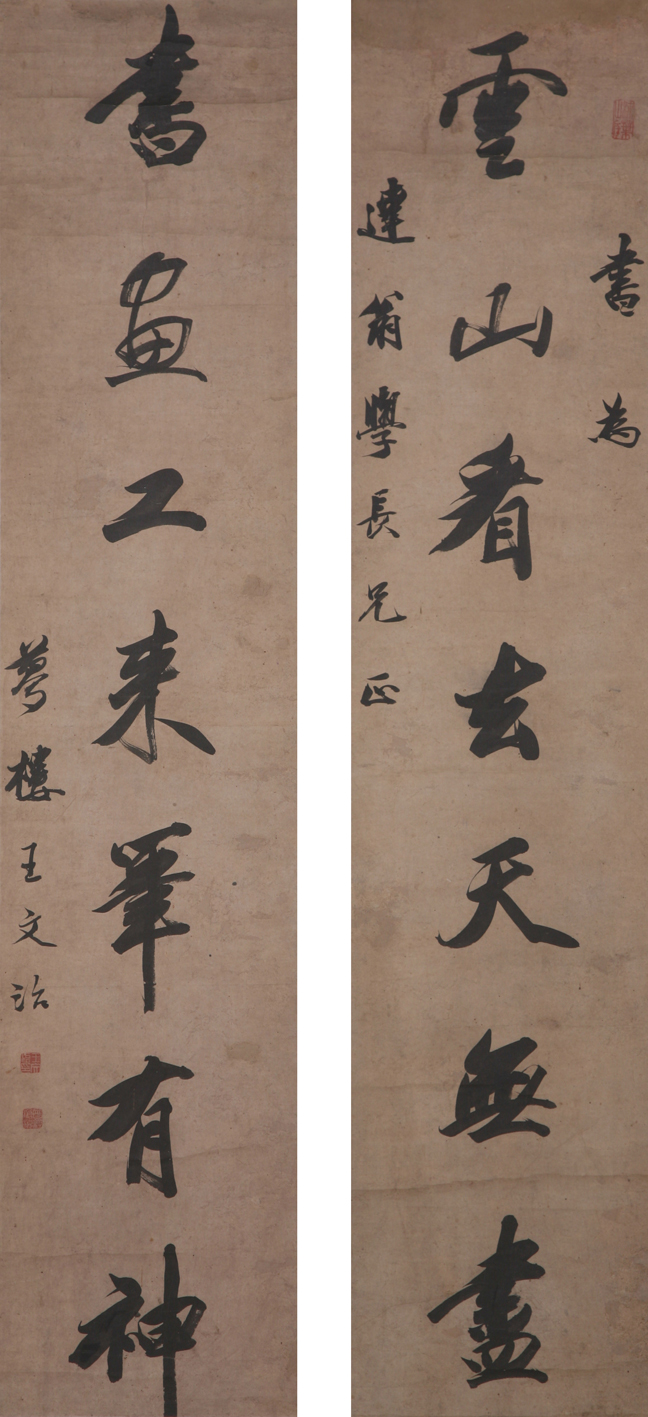 書為
雲山看去天無盡
達翁學長兄正
書畫工来筆有神
夢樓王文治